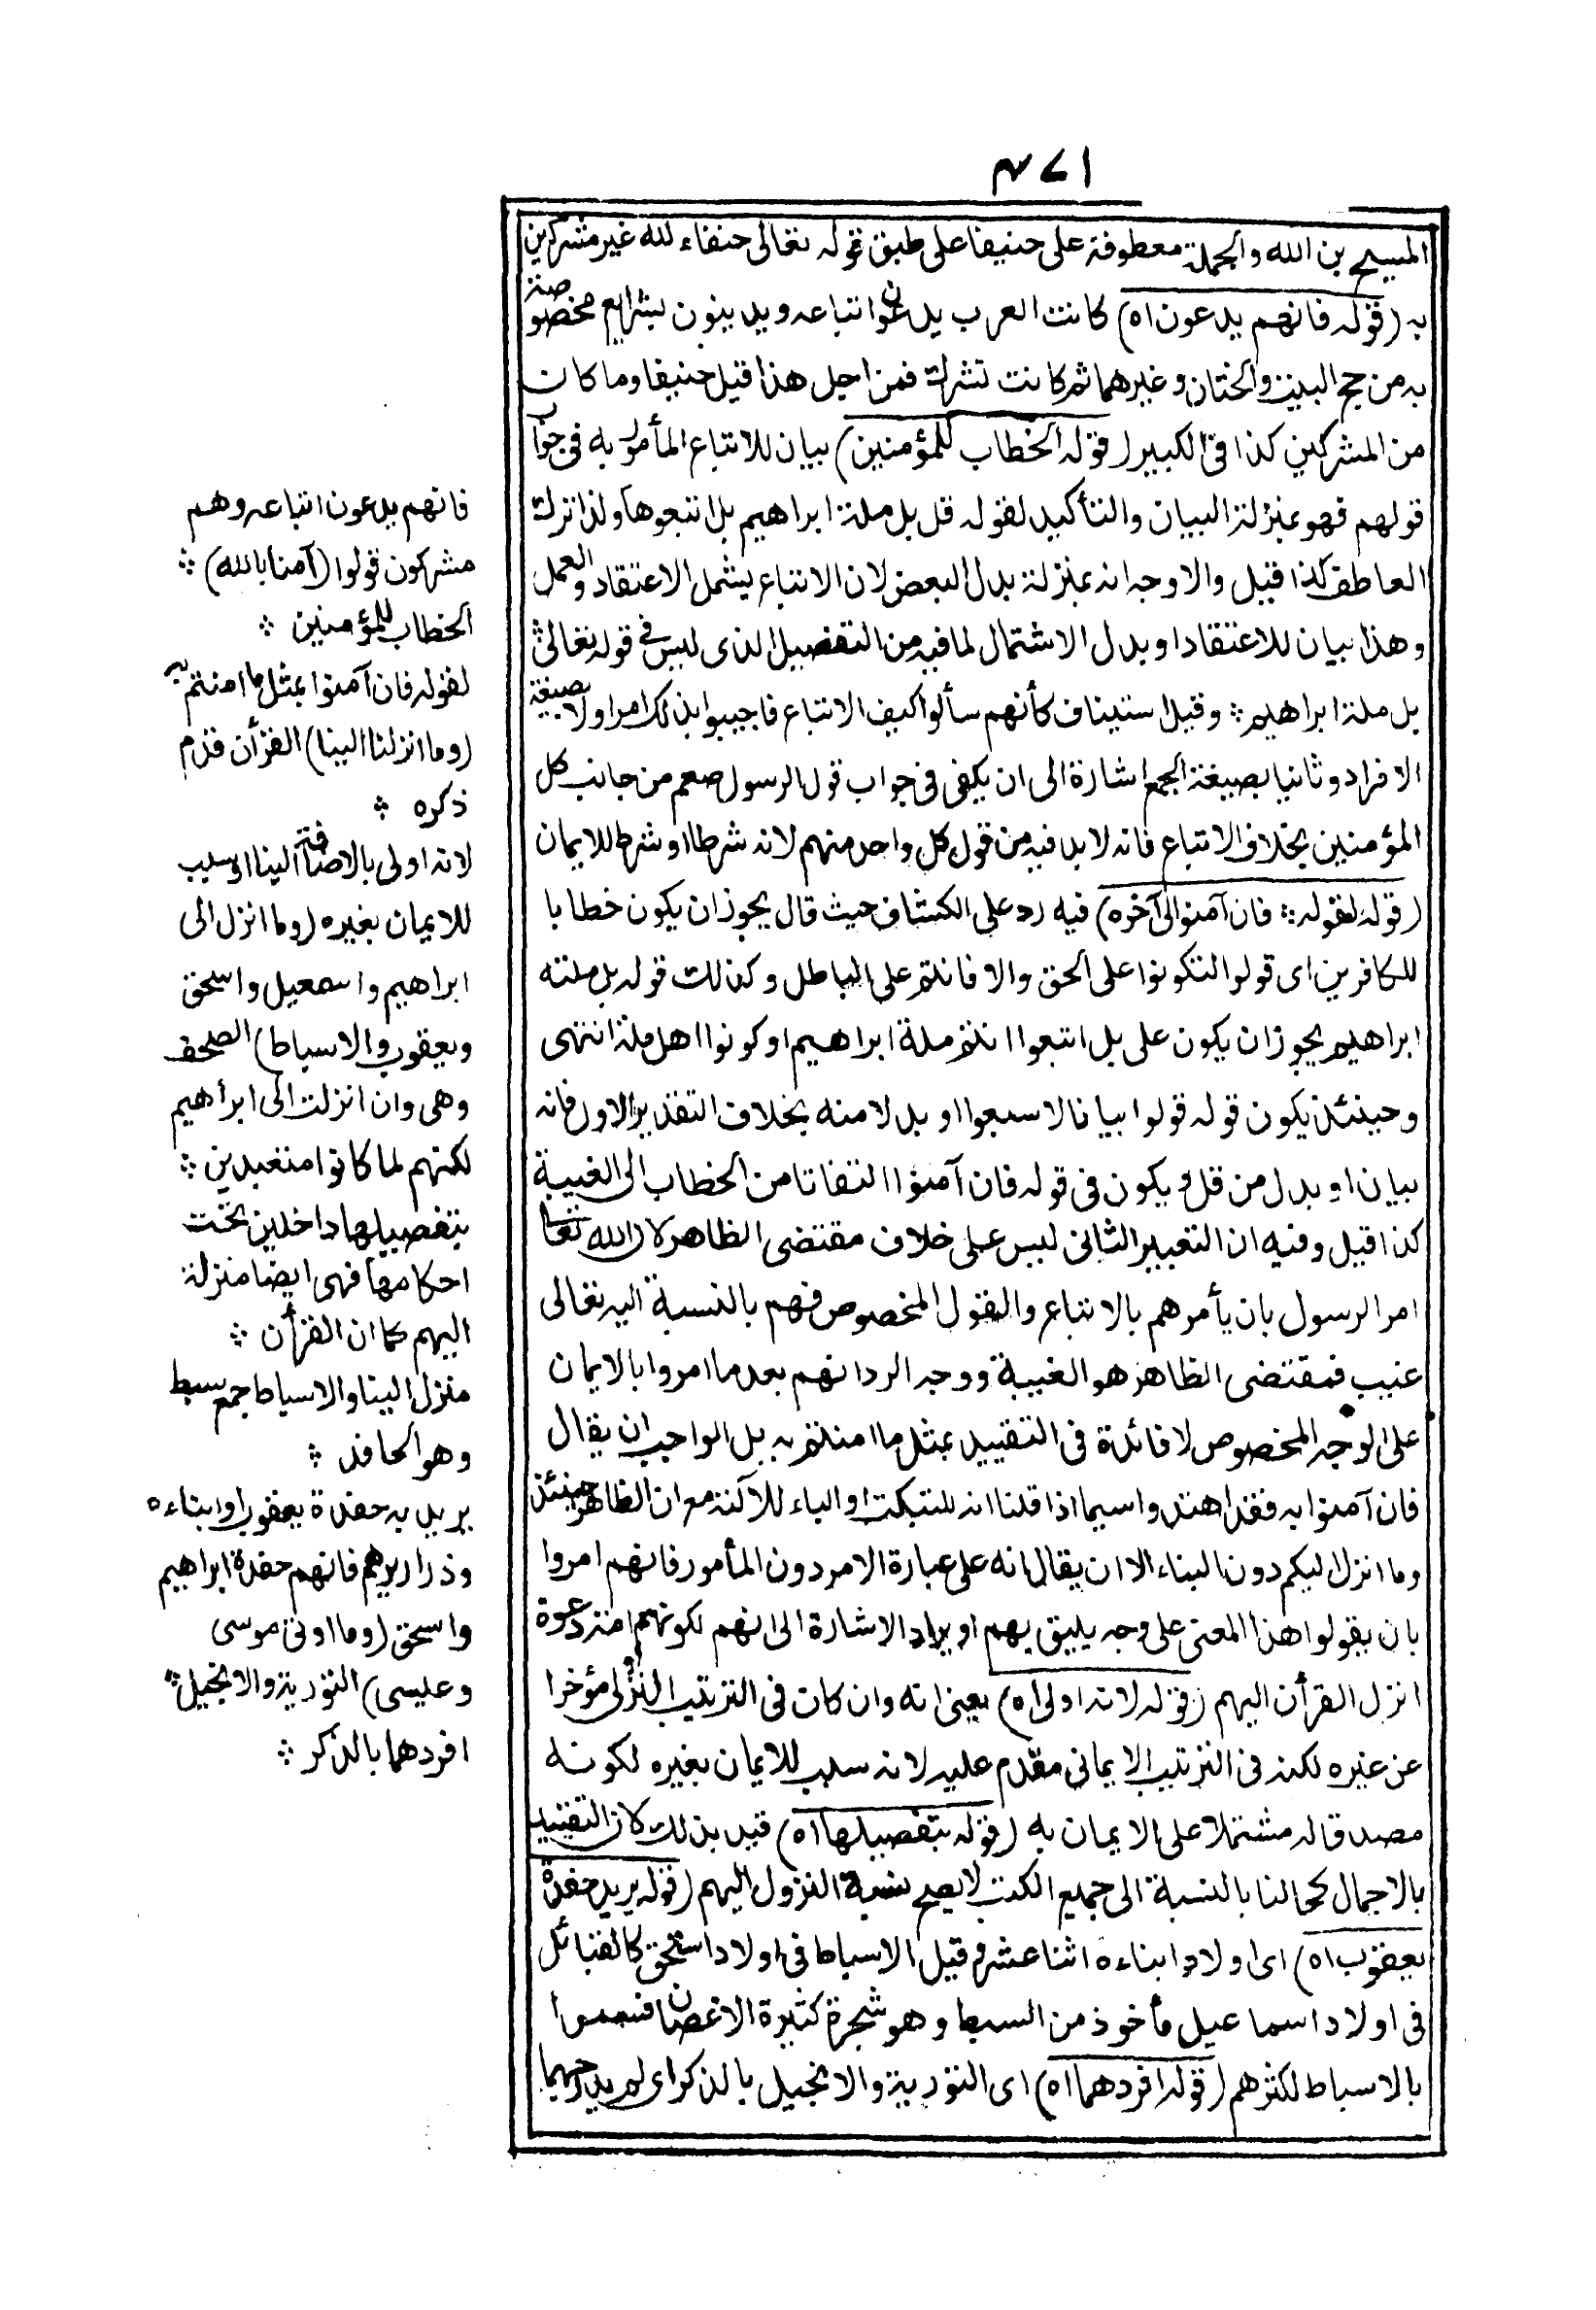 ٤٧١
المسيح بن الله والجملة معطوفة على حنيفا على طبق قوله تعالى حنفاء لله غير مشركين
به (قوله فانهم يدعون اه) كانت العرب يدعون اتباعه ويدينون بشرايع مخصوصة
به من حج البيت والختان وغيرهما ثم كانت تشرك فمن اجل هذا قيل حنيفا وما كان
من المشركين كذا فى الكبير (قوله الخطاب للمؤمنين) بيان للاتباع المأمور به فى جواب
قولهم فهو بمنزلة البيان والتأكيد لقوله قل بل ملة ابراهيم بل اتبعوها ولذا ترك
العاطف كذا قيل والاوجه انه بمنزلة بدل البعض لان الاتباع يشمل الاعتقاد والعمل
وهذا بيان للاعتقاد او بدل الاشتمال لما فيه من التفصيل الذى ليس فى قوله تعالى
بل ملة ابراهيم وقيل استيناف كأنهم سألوا كيف الاتباع فاجيبوا بذلك امر اولا بصيغة
الافراد وثانيا بصيغة الجمع اشارة الى ان يكفى فى جواب قول الرسول صعم من جانب كل
المؤمنين بخلاف الاتباع فانه لا بد فيه من قول كل واحد منهم لانه شرطا او شرط للايمان
(قوله لقوله فان آمنوا الى آخره) فيه رد على الكشاف حيث قال يجوز ان يكون خطابا
للكافرين اى قولوا لتكونوا على الحق والا فانتم على الباطل وكذلك قوله بل ملته
ابراهيم يجوز ان يكون على بل اتبعوا انتم ملة ابراهيم او كونوا اهل ملة انتهى
وحينئذ يكون قوله قولوا بيانا لاتبعوا او بدلا منه بخلاف التقدير الاول فانه
بيان او بدل من قل ويكون فى قوله فان آمنوا التفاتا من الخطاب الى الغيبة
كذا قيل وفيه ان التعبير الثانى ليس على خلاف مقتضى الظاهر لان الله تعا
امر الرسول بان يأمرهم بالاتباع والقول المخصوص فهم بالنسبة اليه تعالى
غيب فمقتضى الظاهر هو الغيبة ووجه الرد انهم بعد ما امروا بالايمان
على الوجه المخصوص لا فائدة فى التقييد بمثل ما امنتم به بل الواجب ان يقال
فان آمنوا به فقد اهتدوا سيما اذا قلنا انه للتبكيت او الباء للآلة مع ان الظاهر حينئذ
وما انزل اليكم دون الينا الا ان يقال انه على عبارة الامر دون المأمور فانهم امروا
بان يقولوا هذا المعنى على وجه يليق بهم او يراد الاشارة الى انهم لكونهم امة دعوة
انزل القرأن اليهم (قوله لانه اولى اه) يعنى انه وان كان فى الترتيب النزولى مؤخرا
عن غيره لكنه فى الترتيب الايمانى مقدم عليه لانه سبب للايمان بغيره لكونه
مصدقا له مشتملا على الايمان به (قوله بتفصيلها اه) قيد بذلك لان التقييد
بالاجمال كحالنا بالنسبة الى جميع الكتب لا يصح نسبة النزول اليهم (قوله يريد حفدة
يعقوب اه) اى اولاد ابناءه اثنا عشر وقيل الاسباط فى اولاد اسحق كالقبائل
فى اولاد اسماعيل مأخوذ من السبط وهو شجرة كثيرة الاغصان فسموا
بالاسباط لكثرهم (قوله افردهما اه) اى التورية والانجيل بالذكر اى لم يدرجهما
فانهم يدعون اتباعه وهم
مشركون قولوا (آمنا بالله)
الخطاب للمؤمنين
لقوله فان آمنوا بمثل ما امنتم به
(وما انزلنا الينا) القرأن قدم
ذكره
لانه اولى بالاضافة الينا او سبب
للايمان بغيره (وما انزل الى
ابراهيم واسمعيل واسحق
ويعقوب والاسباط) الصحف
وهى وان انزلت الى ابراهيم
لكنهم لما كانوا متعبدين
بتفصيلها داخلين تحت
احكامها فهى ايضا منزلة
اليهم كما ان القرأن
منزل الينا والاسباط جمع سبط
وهو الحافد
يريد به حفدة يعقوب او ابناءه
وذراريهم فانهم حفدة ابراهيم
واسحق (وما اوتى موسى
وعيسى) التورية والانجيل
افردهما بالذكر